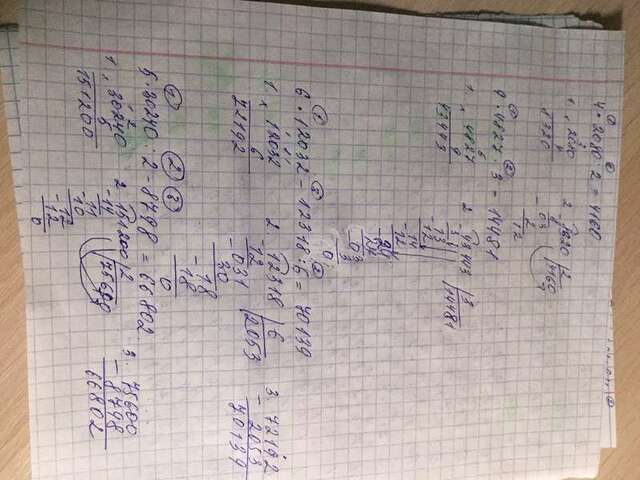 4 · 2080 : 2 = 4160
1, 2080
4
8320
2 8320 | 2
4160
12
9 · 4827 : 3 = 14481
1, 4827
9
43443
2 43443 | 3
14481
6 · 12032 - 12318 : 6 = 70139
1, 12032
6
72192
2 12318 | 6
- 12 2053
- 031
30
- 18
18
0
3 72192
- 2053
70139
5 · 30240 : 2 - 8798 = 66802
1, 30240
5
151200
2 151200 | 2
- 14 75600
- 11
10
- 12
12
0
3 75600
- 8798
66802